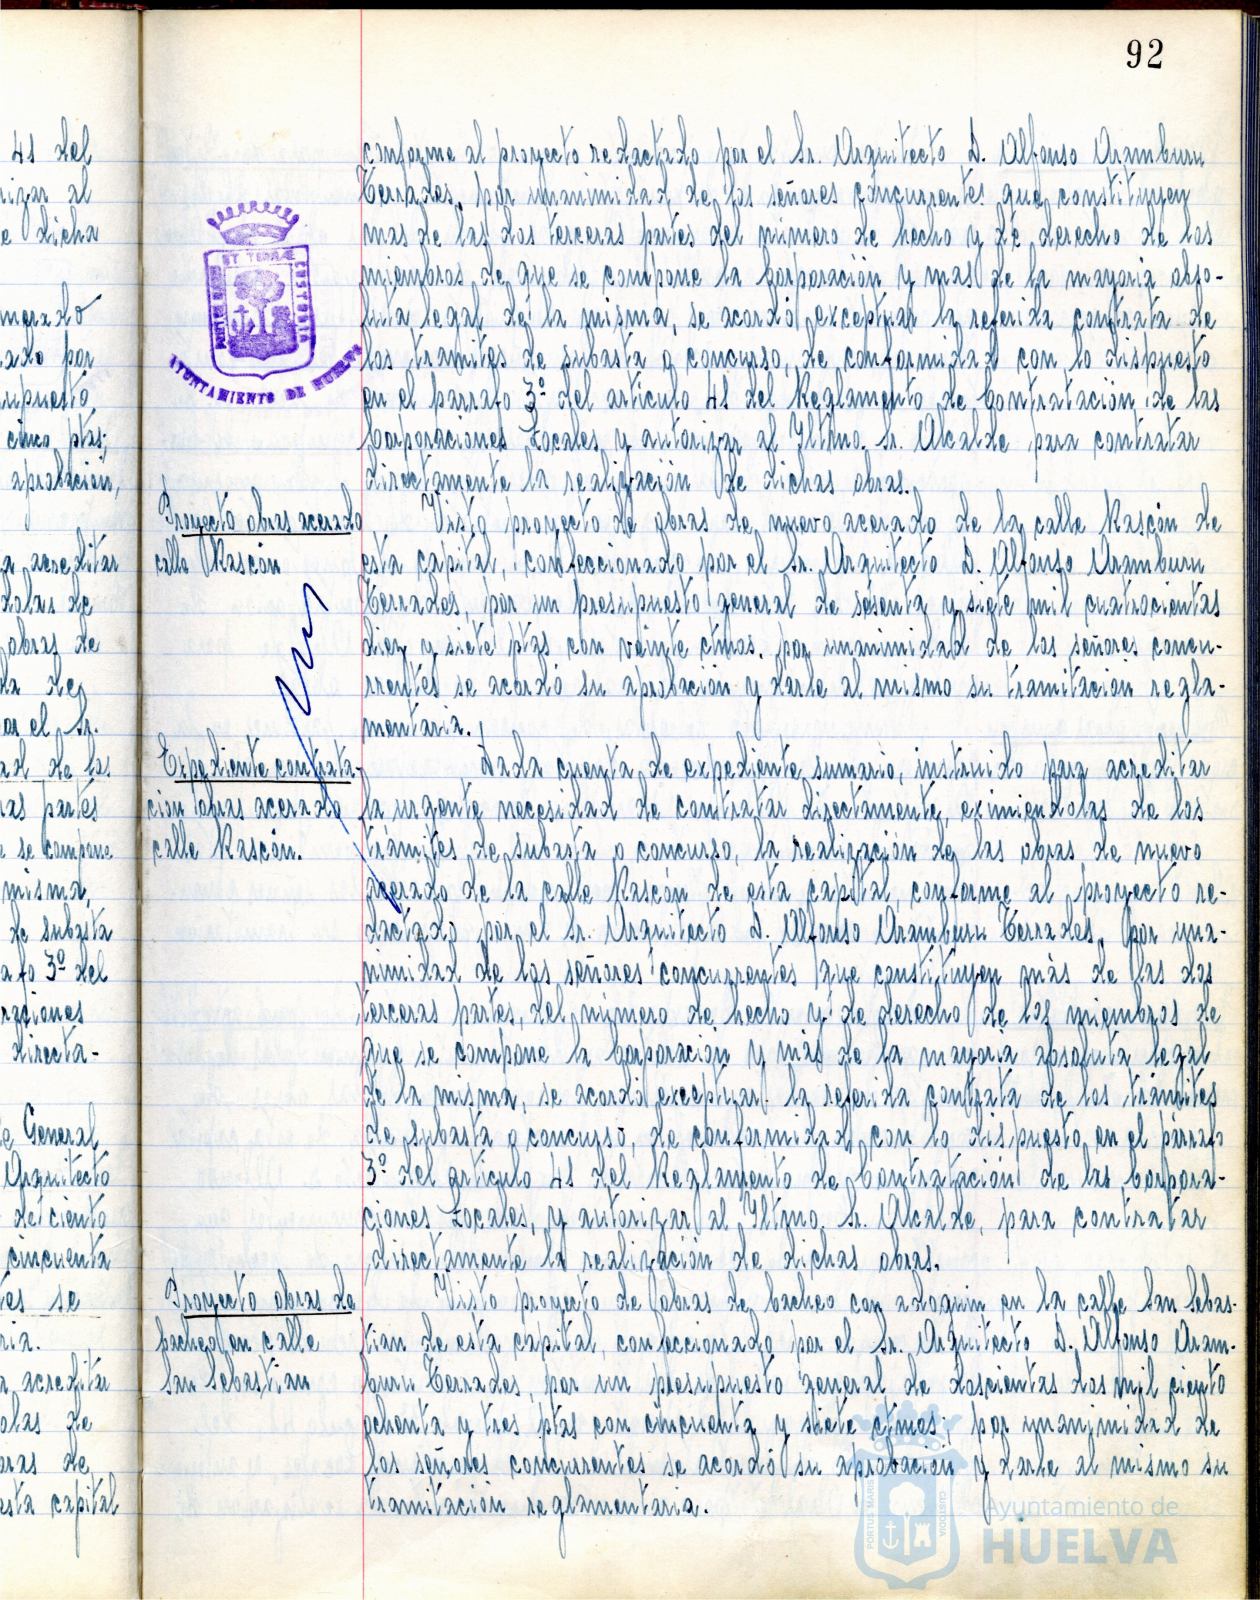 92
41 del
rizar al
e dicha
merado
ado por
supuesto
cinco ptas;
aprobación,
a acreditar
dolas de
obras de
la de
or el Sr.
ad de los
as partes
e se compone
misma,
de subasta
afo 3º del
raciones
directa-
e General
Arquitecto
de ciento
cincuenta
tes se
ria.
a acreditar
olas de
ras de
esta capital
PORTUS MARIS ET TERRAE CUSTODIA
AYUNTAMIENTO DE HUELVA
conforme al proyecto redactado por el Sr. Arquitecto D. Alfonso Aramburu
Terrades, por unanimidad de los señores concurrentes que constituyen
mas de las dos terceras partes del número de hecho y de derecho de los
miembros de que se compone la Corporación y mas de la mayoria abso-
luta legal de la misma, se acordó exceptuar la referida contrata de
los tramites de subasta o concurso, de conformidad con lo dispuesto
en el párrafo 3º del artículo 41 del Reglamento de Contratación de las
Corporaciones Locales y autorizar al Iltmo. Sr. Alcalde para contratar
directamente la realización de dichas obras.
Proyecto obras acerado
calle Rascón
Visto proyecto de obras de nuevo acerado de la calle Rascón de
esta capital, confeccionado por el Sr. Arquitecto D. Alfonso Aramburu
Terrades, por un presupuesto general de sesenta y siete mil cuatrocientas
diez y siete ptas con veinte ctmos. por unanimidad de los señores concu-
rrentes se acordó su aprobación y darle al mismo su tramitación regla-
mentaria.
Expediente contrata-
ción obras acerado
calle Rascón.
Dada cuenta de expediente sumario, instruido para acreditar
la urgente necesidad de contratar directamente, eximiendolas de los
trámites de subasta o concurso, la realización de las obras de nuevo
acerado de la calle Rascón de esta capital, conforme al proyecto re-
dactado por el Sr. Arquitecto D. Alfonso Aramburu Terrades, por una-
nimidad de los señores concurrentes que constituyen más de las dos
terceras partes, del número de hecho y de derecho de los miembros de
que se compone la Corporación y más de la mayoria absoluta legal
de la misma, se acordó exceptuar la referida contrata de los trámites
de subasta o concurso, de conformidad con lo dispuesto en el párrafo
3º del artículo 41 del Reglamento de Contratación de las Corpora-
ciones Locales, y autorizar al Iltmo. Sr. Alcalde, para contratar
directamente la realización de dichas obras.
Proyecto obras de
bacheo en calle
San Sebastian
Visto proyecto de obras de bacheo con adoquin en la calle San Sebas-
tian de esta capital, confeccionado por el Sr. Arquitecto D. Alfonso Aram-
buru Terrades, por un presupuesto general de doscientas dos mil ciento
ochenta y tres ptas con cincuenta y siete ctmos; por unanimidad de
los señores concurrentes se acordó su aprobación y darle al mismo su
tramitación reglamentaria.
PORTUS MARIS CUSTODIA
Ayuntamiento de
HUELVA